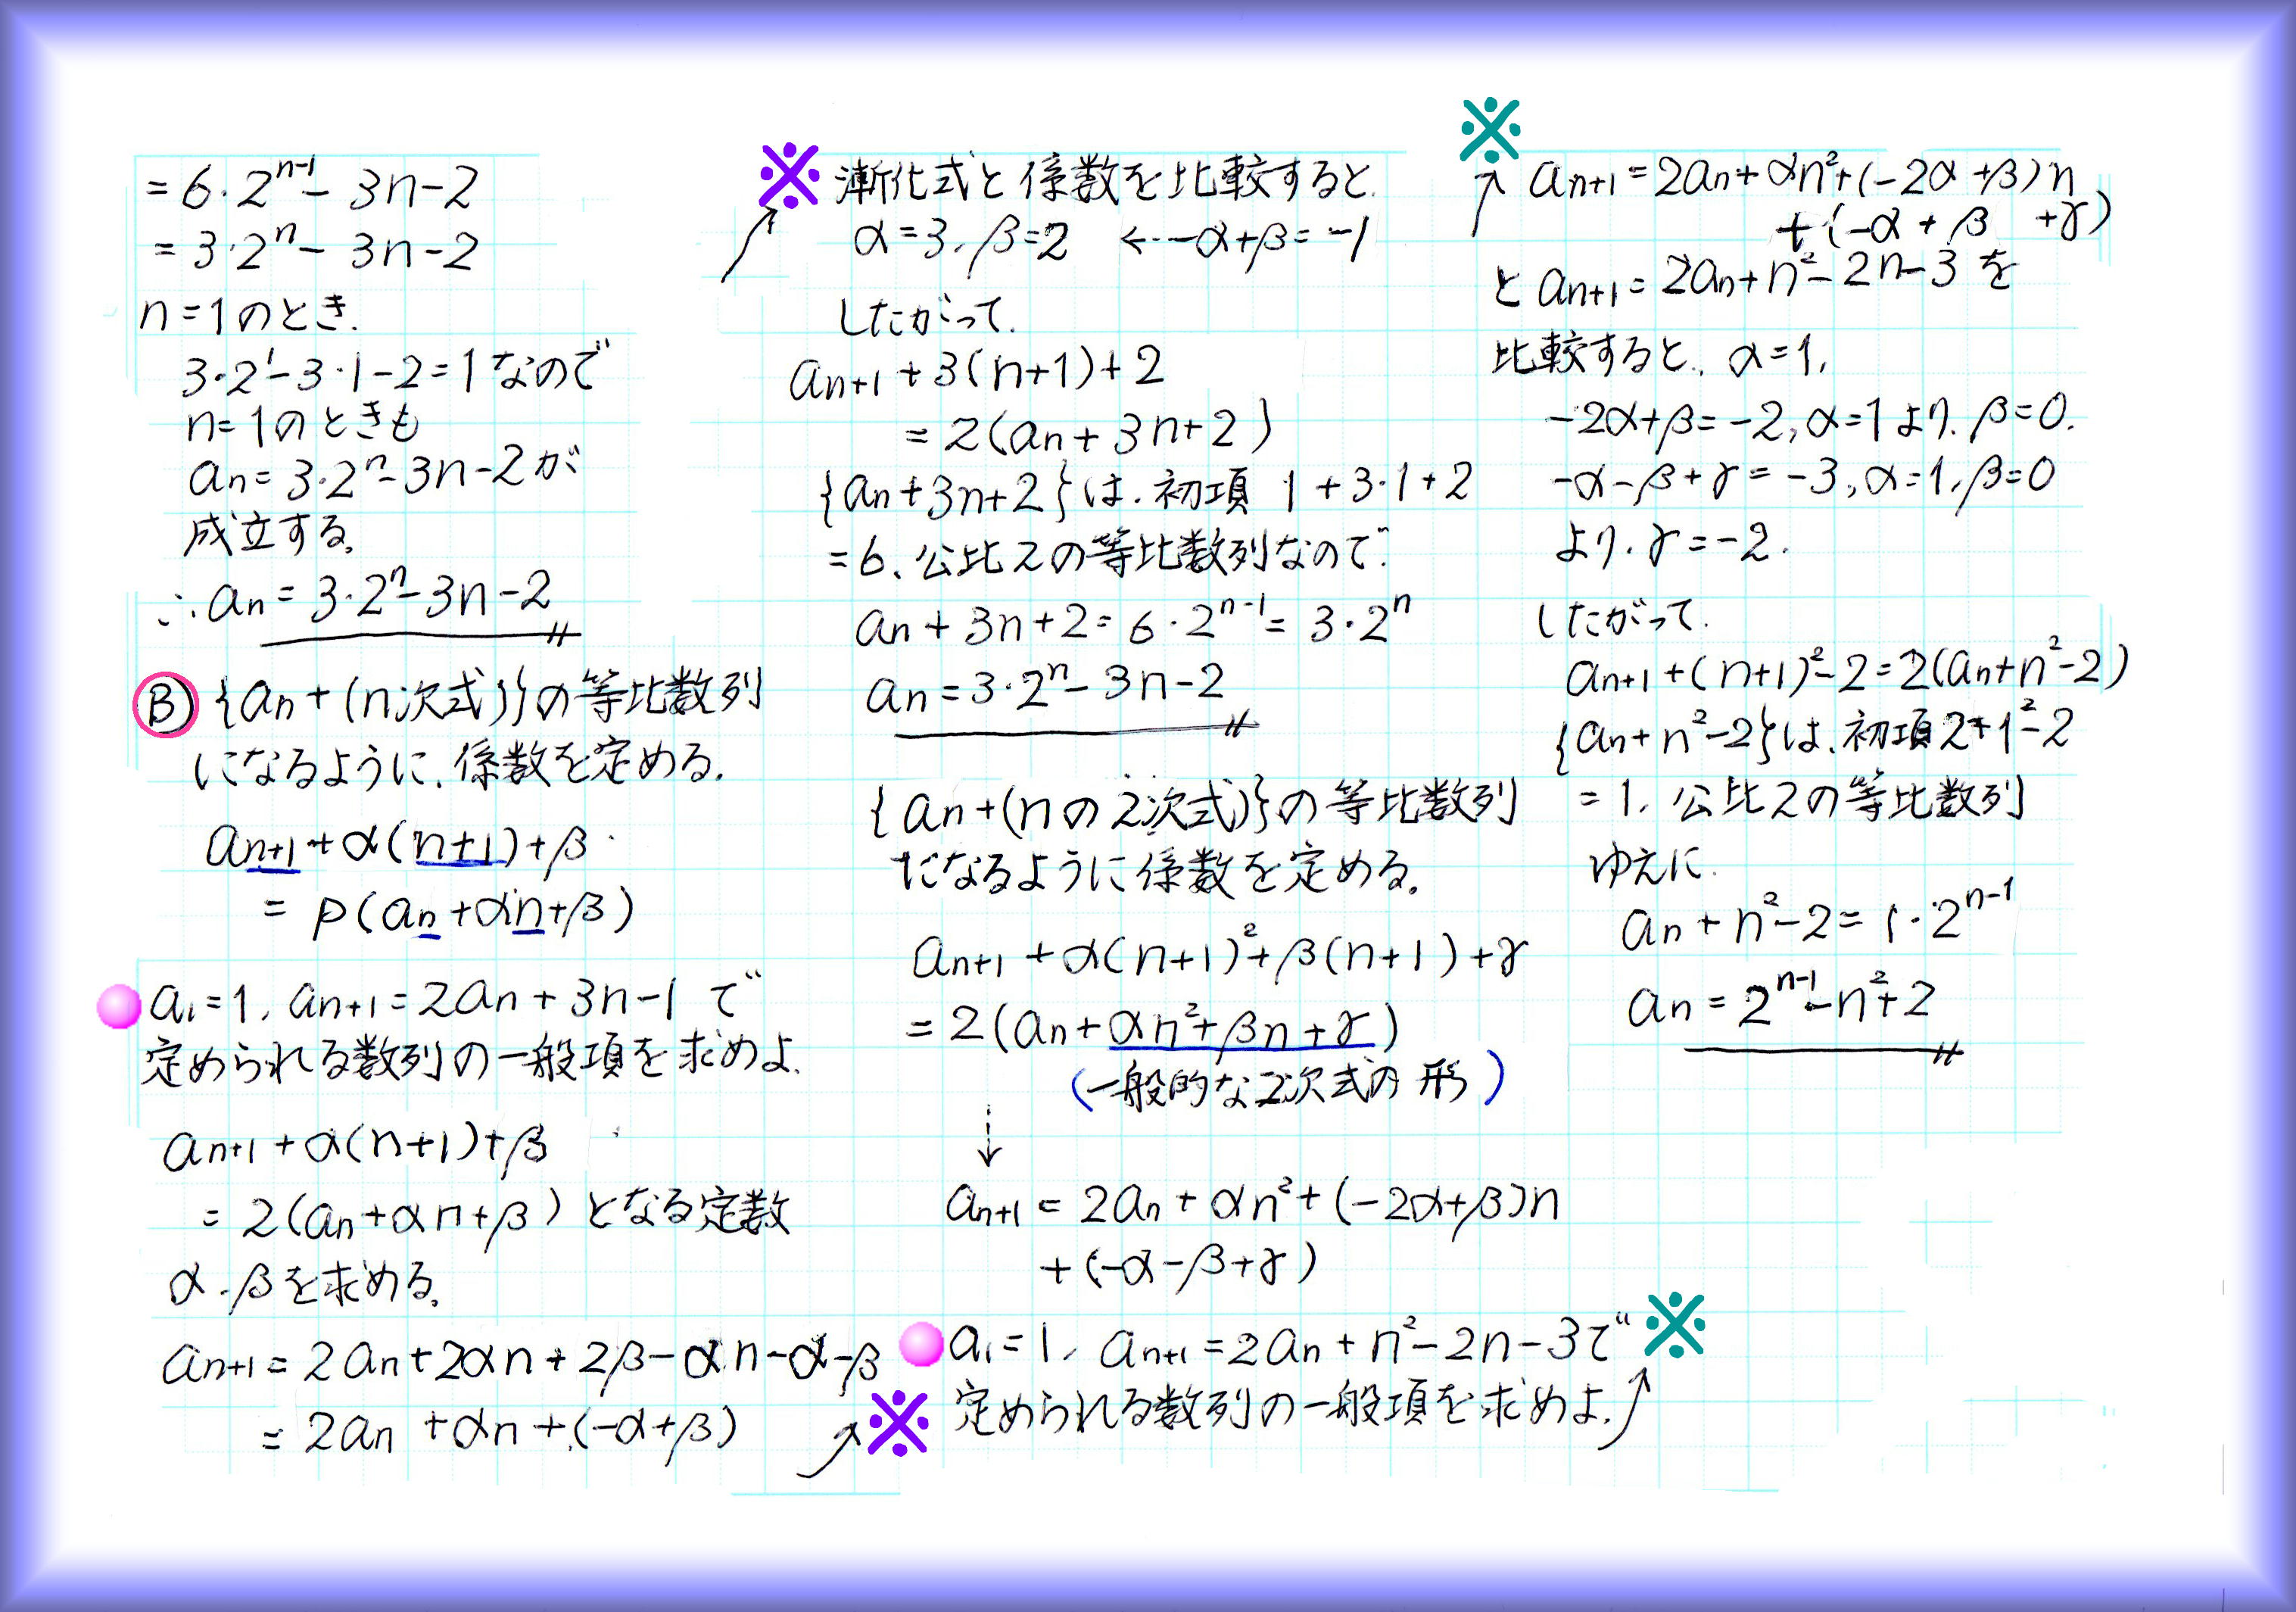 = 6・2^{n-1} - 3n-2
= 3・2^n - 3n-2
n=1のとき.
3・2^1-3・1-2=1なので
n=1のときも
an=3・2^n-3n-2が
成立する。
∴an=3・2^n-3n-2
Ⓑ {an+(n次式)}の等比数列
になるように、係数を定める.
an+1+α(n+1)+β
= p(an+αn+β)
a1=1, an+1=2an+3n-1 で
定められる数列の一般項を求めよ.
an+1+α(n+1)+β
= 2(an+αn+β) となる定数
α.βを求める。
an+1=2an+2αn+2β-αn-α-β
= 2an +αn+(-α+β)
※
※ 漸化式と係数を比較すると.
α=3, β=2 ←-α+β=-1
したがって.
an+1+3(n+1)+2
= 2(an+3n+2)
{an+3n+2}は.初項 1+3・1+2
=6、公比2の等比数列なので.
an+3n+2=6・2^{n-1}=3・2^n
an=3・2^n-3n-2
{an+(nの2次式)}の等比数列
だなるように係数を定める。
an+1+α(n+1)^2+β(n+1)+γ
= 2(an+αn^2+βn+γ)
(一般的な2次式の形)
↓
an+1=2an+αn^2+(-2α+β)n
+(-α-β+γ)
a1=1, an+1=2an+n^2-2n-3で ※
定められる数列の一般項を求めよ.
※
an+1=2an+αn^2+(-2α+β)n
+(-α+β +γ)
とan+1=2an+n^2-2n-3を
比較すると., α=1,
-2α+β=-2,α=1より.β=0.
-α-β+γ=-3,α=1,β=0
より.γ=-2.
したがって.
an+1+(n+1)^2-2=2(an+n^2-2)
{an+n^2-2}は.初項2+1^2-2
=1, 公比2の等比数列
ゆえに.
an+n^2-2=1・2^{n-1}
an=2^{n-1}-n^2+2